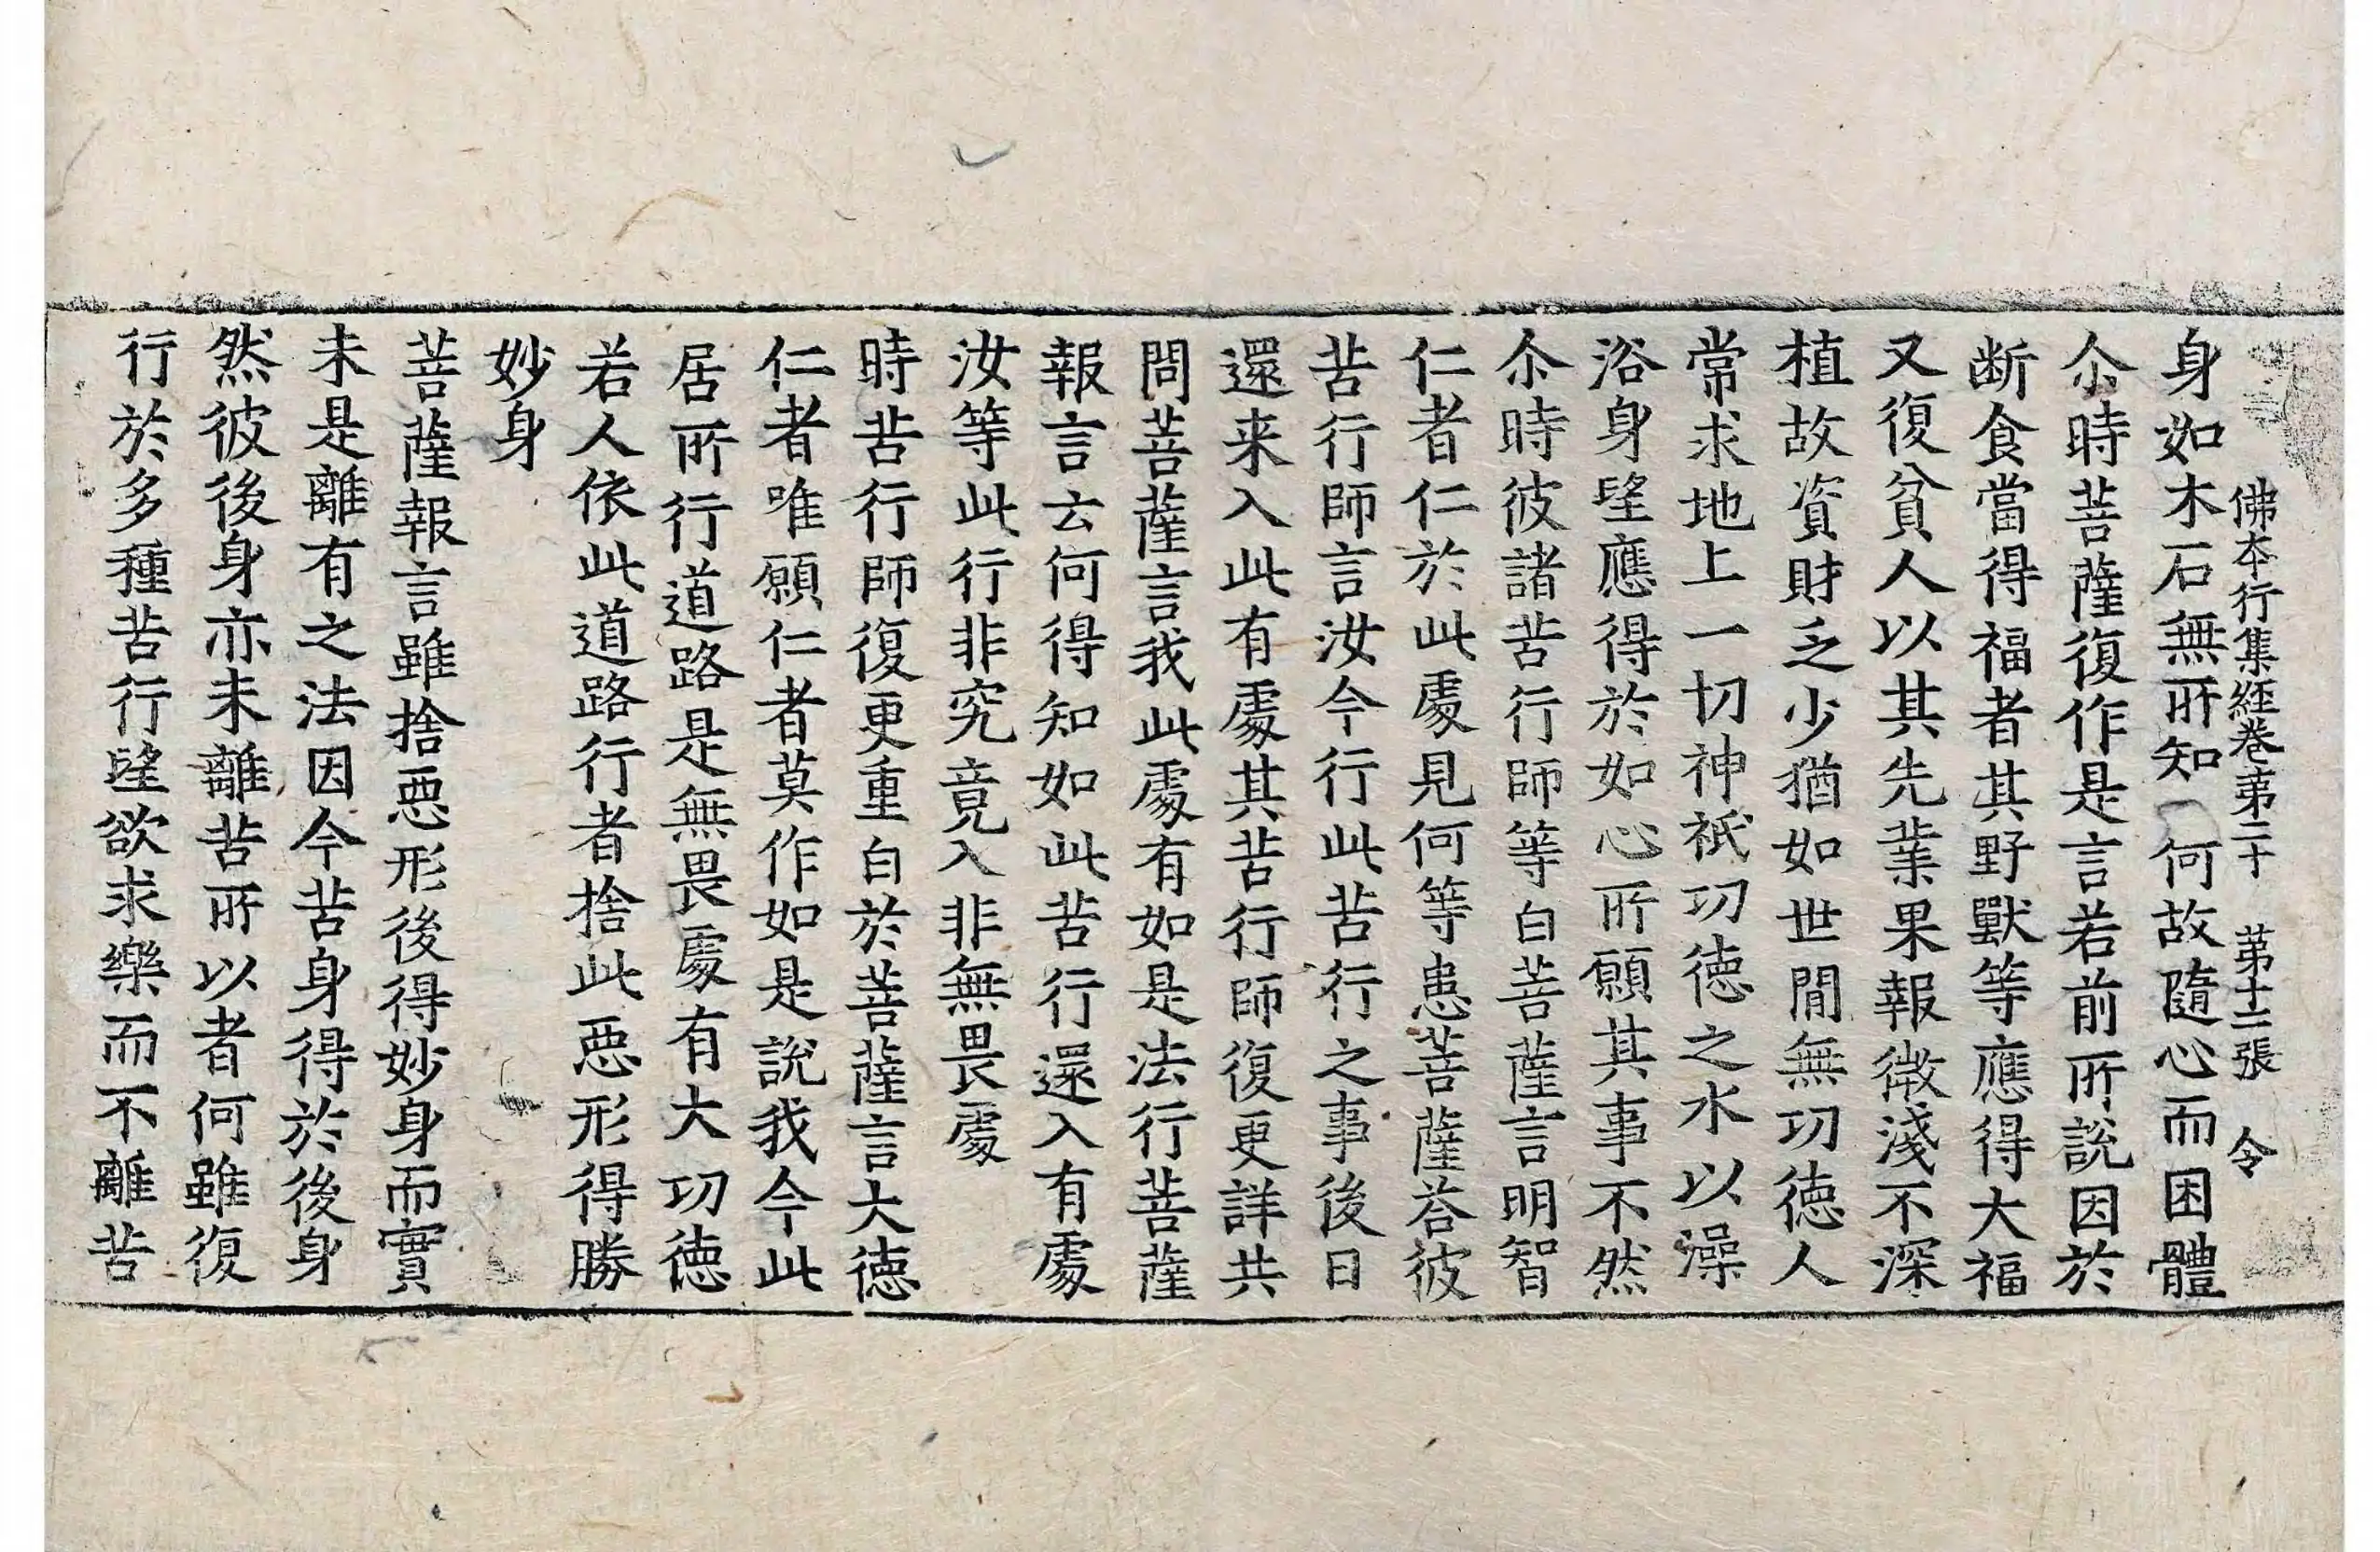 佛本行集經卷第二十 第十二張 令
身如木石無所知 何故隨心而困體
尒時菩薩復作是言若前所說因於
断食當得福者其野獸等應得大福
又復貧人以其先業果報微淺不深
植故資財乏少猶如世閒無功德人
常求地上一切神祇功德之水以澡
浴身望應得於如心所願其事不然
尒時彼諸苦行師等白菩薩言明智
仁者仁於此處見何等患菩薩荅彼
苦行師言汝今行此苦行之事後日
還来入此有處其苦行師復更詳共
問菩薩言我此處有如是法行菩薩
報言云何得知如此苦行還入有處
汝等此行非究竟入非無畏處
時苦行師復更重白於菩薩言大德
仁者唯願仁者莫作如是說我今此
居所行道路是無畏處有大功德
若人依此道路行者捨此惡形得勝
妙身
菩薩報言雖捨惡形後得妙身而實
未是離有之法因今苦身得於後身
然彼後身亦未離苦所以者何雖復
行於多種苦行望欲求樂而不離苦